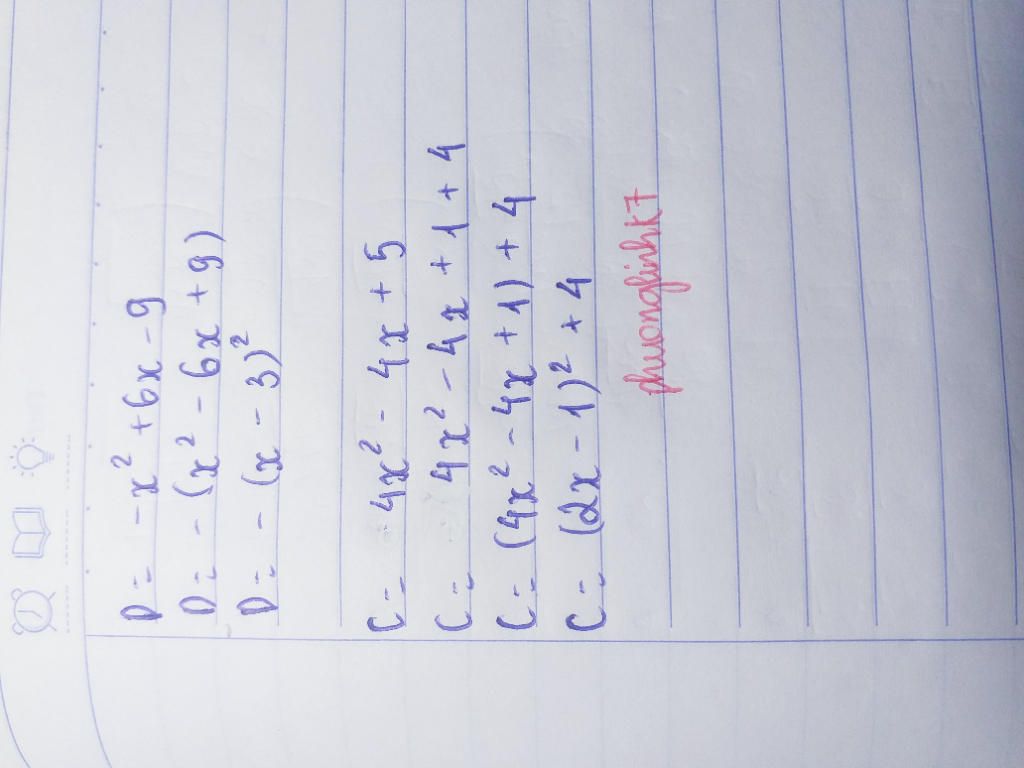 D = -x² + 6x - 9
D = - (x² - 6x + 9)
D = - (x - 3)²
C = 4x² - 4x + 5
C = 4x² - 4x + 1 + 4
C = (4x² - 4x + 1) + 4
C = (2x - 1)² + 4
phuonglinhk7